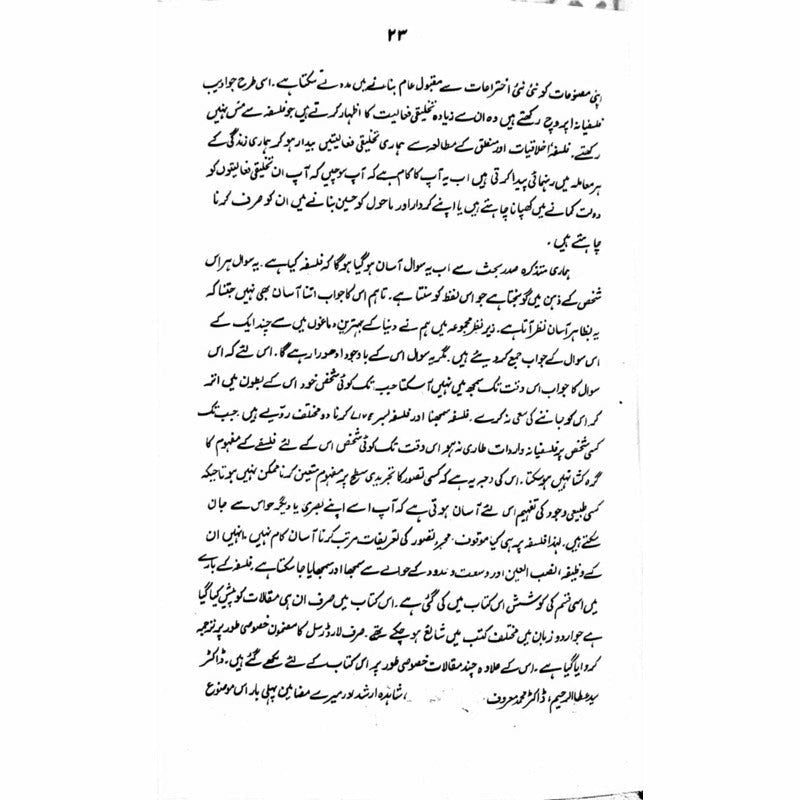 ۲۳
اپنی مصنوعات کو نئی نئی اختراعات سے مقبول عام بنانے میں مدد دے سکتا ہے۔ اسی طرح جو ادیب
فلسفیانہ اپروچ رکھتے ہیں وہ ان سے زیادہ تخلیقی فعالیت کا اظہار کرتے ہیں جو فلسفہ سے مس نہیں
رکھتے۔ فلسفہ اخلاقیات اور منطق کے مطالعہ سے ہماری تخلیقی فعالیتیں بیدار ہو کر ہماری زندگی کے
ہر معاملہ میں رہنمائی پیدا کرتی ہیں اب یہ آپ کا کام ہے کہ آپ سوچیں کہ آپ ان تخلیقی فعالیتوں کو
دولت کمانے میں کھپانا چاہتے ہیں یا اپنے کردار اور ماحول کو حسین بنانے میں ان کو صرف کرنا
چاہتے ہیں۔
ہماری متذکرہ صدر بحث سے اب یہ سوال آسان ہو گیا ہوگا کہ فلسفہ کیا ہے۔ یہ سوال ہر اس
شخص کے ذہن میں گونجتا ہے جو اس لفظ کو سنتا ہے۔ تاہم اس کا جواب اتنا آسان بھی نہیں جتنا کہ
یہ بظاہر آسان نظر آتا ہے۔ زیر نظر مجموعہ میں ہم نے دنیا کے بہترین دماغوں میں سے چند ایک کے
اس سوال کے جواب جمع کر دیئے ہیں۔ مگر یہ سوال اس کے باوجود ادھورا رہے گا۔ اس لئے کہ اس
سوال کا جواب اس وقت تک سمجھ میں نہیں آ سکتا جب تک کوئی شخص خود اس کے بطون میں اتر
کر اس کو جاننے کی سعی نہ کرے۔ فلسفہ سمجھنا اور فلسفہ بسر کرنا دو مختلف رویے ہیں۔ جب تک
کسی شخص پر فلسفیانہ واردات طاری نہ ہو اس وقت تک کوئی شخص اس کے لئے فلسفے کے مفہوم کا
گرہ کشا نہیں ہو سکتا۔ اس کی وجہ یہ ہے کہ کسی تصور کا تجریدی سطح پر مفہوم متعین کرنا ممکن نہیں ہوتا جبکہ
کسی طبیعی وجود کی تفہیم اس لئے آسان ہوتی ہے کہ آپ اسے اپنے بصری یا دیگر حواس سے جان
سکتے ہیں۔ لہذا فلسفہ پر ہی کیا موقوف مجرد تصور کی تعریفات مرتب کرنا آسان کام نہیں۔ انہیں ان
کے وظیفہ، نصب العین اور وسعت و حدود کے حوالے سے سمجھا اور سمجھایا جا سکتا ہے۔ فلسفہ کے بارے
میں اسی قسم کی کوشش اس کتاب میں کی گئی ہے۔ اس کتاب میں صرف ان ہی مقالات کو پیش کیا گیا
ہے جو اردو زبان میں مختلف کتب میں شائع ہو چکے تھے۔ صرف لارڈ رسل کا مضمون خصوصی طور پر ترجمہ
کروایا گیا ہے۔ اس کے علاوہ چند مقالات خصوصی طور پر اس کتاب کے لئے لکھے گئے ہیں۔ ڈاکٹر
سید عطا الرحیم، ڈاکٹر محمد معروف، شاہدہ ارشد اور میرے مضامین پہلی بار اس موضوع